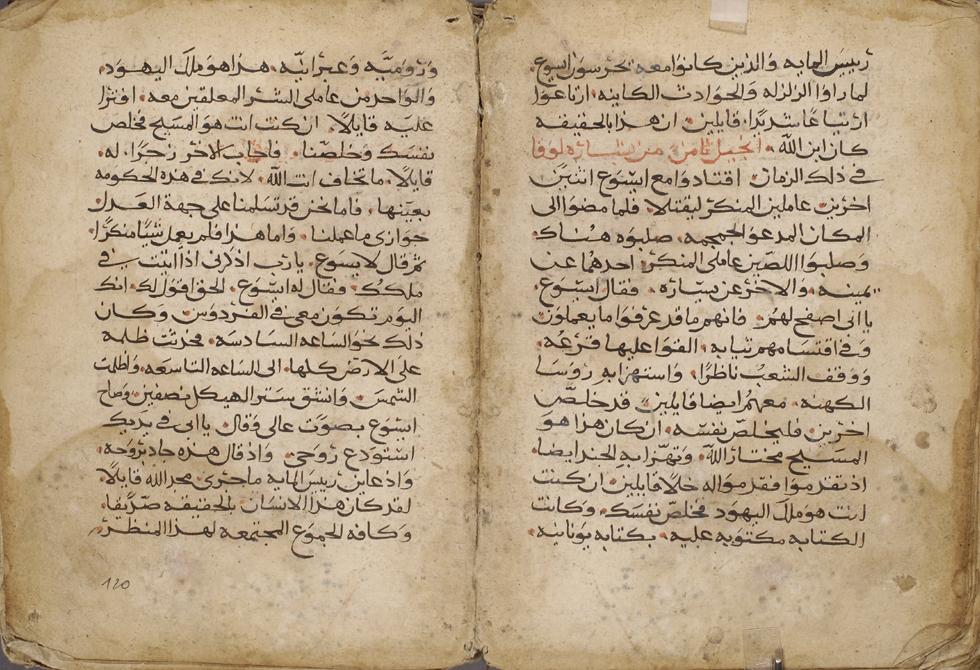 رييس المايه والذين كانوا معه يحرسون ايسوع
لما راوا الزلزله والحوادث الكاينه، ارتاعوا
ارتياعًا شديدًا، قايلين، ان هذا بالحقيقه
كان ابن الله، انجيل ثامن من بشارة لوقا
في ذلك الزمان اقتادوا مع ايسوع اثنين
اخرين عاملين المنكر ليقتلا، فلما مضوا الى
المكان المدعو الجمجمه، صلبوه هناك
وصلبوا اللصين عاملي المنكر، احدهما عن
يمينه، والاخر عن يساره، فقال ايسوع،
يا ابى اصفح لهم، فانهم ما قد عرفوا ما يعملون
وفي اقتسامهم ثيابه، القوا عليها قرعه،
ووقف الشعب ناظرًا، واستهزا به روسا
الكهنه، معهم ايضا قايلين، قد خلص
اخرين، فليخلص نفسه، ان كان هذا هو
المسيح مختار الله، وتهزا به الجند ايضا،
اذ تقدموا فقدموا له خلا قايلين، ان كنت
انت هو ملك اليهود، فخلص نفسك، وكانت
الكتابه مكتوبه عليه، بكتابه يونانيه،
وروميه وعبرانيه، هذا هو ملك اليهود،
والواحد من عاملي الشر المعلقين معه، افترا
عليه قايلًا، ان كنت انت هو المسيح فخلص
نفسك وخلصنا، فاجاب الاخر زجرًا له،
قايلًا، ما تخاف انت الله، لانك في هذه الحكومه
بعينها، فاما نحن قد تسلمنا على جهة العدل
جوازي ما عملنا، واما هذا فلم يعمل شيًا منكرًا،
ثم قال لايسوع، يا رب اذكرني اذا اتيت في
ملكك، فقال له ايسوع، الحق اقول لك، انك
اليوم تكون معي في الفردوس، وكان
ذلك نحو الساعه السادسه، فحدثت ظلمه
على الارض كلها، الى الساعه التاسعه، واظلمت
الشمس، وانشق ستر الهيكل بنصفين، وصاح
ايسوع بصوت عالي وقال، يا ابى في يديك
استودع روحي، واذ قال هذه جاد بروحه،
واذ عاين رييس المايه ما جرى، مجد الله قايلًا،
لقد كان هذا الانسان بالحقيقه صديقا،
وكافه الجموع المجتمعه لهذا المنظر،
120